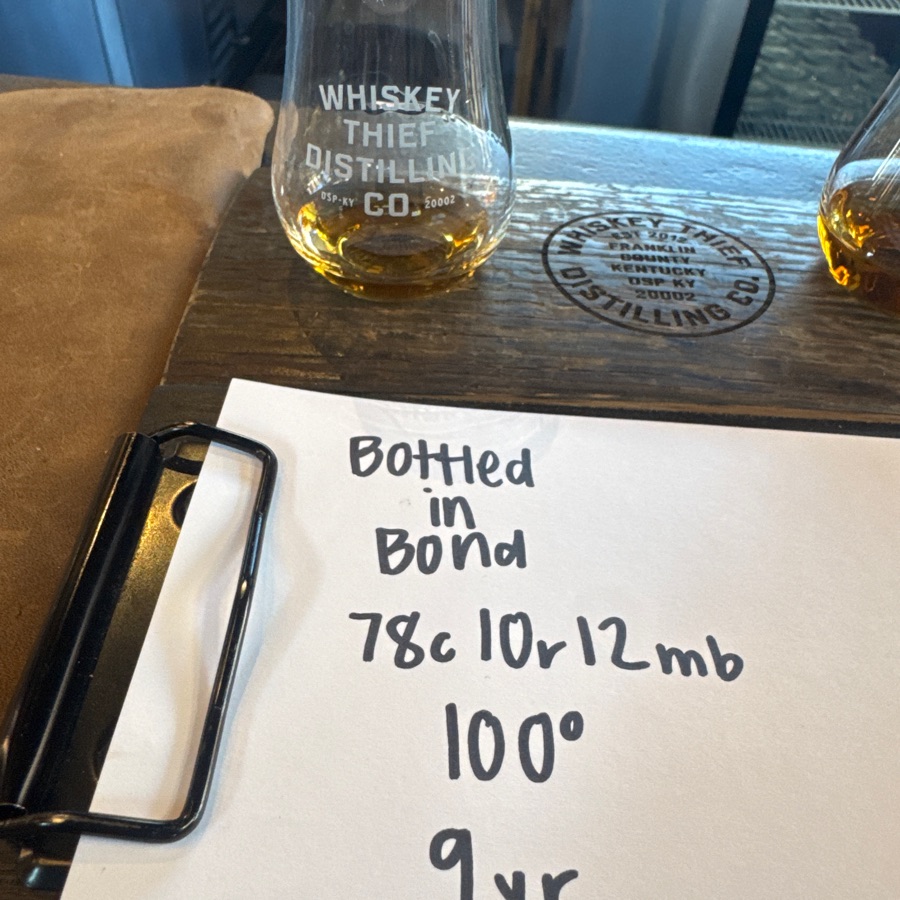 WHISKEY
THIEF
DISTILLIN
CO.
DSP-KY 20002
WHISKEY THIEF
EST. 2012
FRANKLIN
COUNTY
KENTUCKY
DSP KY
20002
DISTILLING CO.
Bottled
in
Bond
78c 10r 12mb
100°
9yr